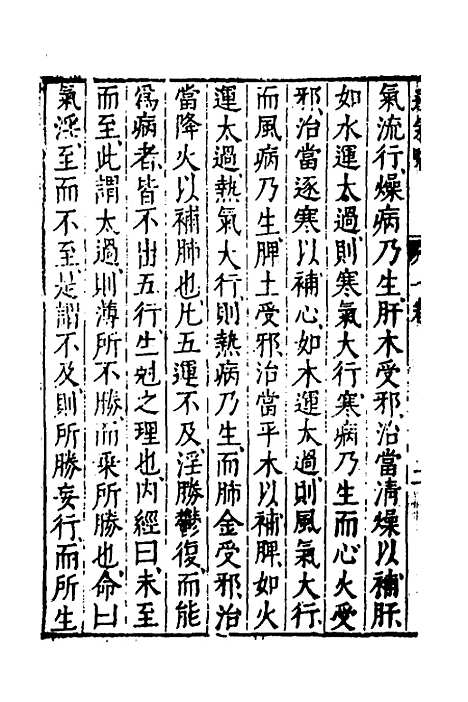 氣流行、燥病乃生、肝木受邪、治當清燥以補肝、
如水運太過、則寒氣大行、寒病乃生、而心火受
邪、治當逐寒以補心、如木運太過、則風氣大行、
而風病乃生、脾土受邪、治當平木以補脾、如火
運太過、熱氣大行、則熱病乃生、而肺金受邪、治
當降火以補肺也、凡五運不及、淫勝鬱復、而能
爲病者、皆不出五行生尅之理也、内經曰、未至
而至、此謂太過、則薄所不勝、而乘所勝也、命曰
氣淫、至而不至、是謂不及、則所勝妄行、而所生